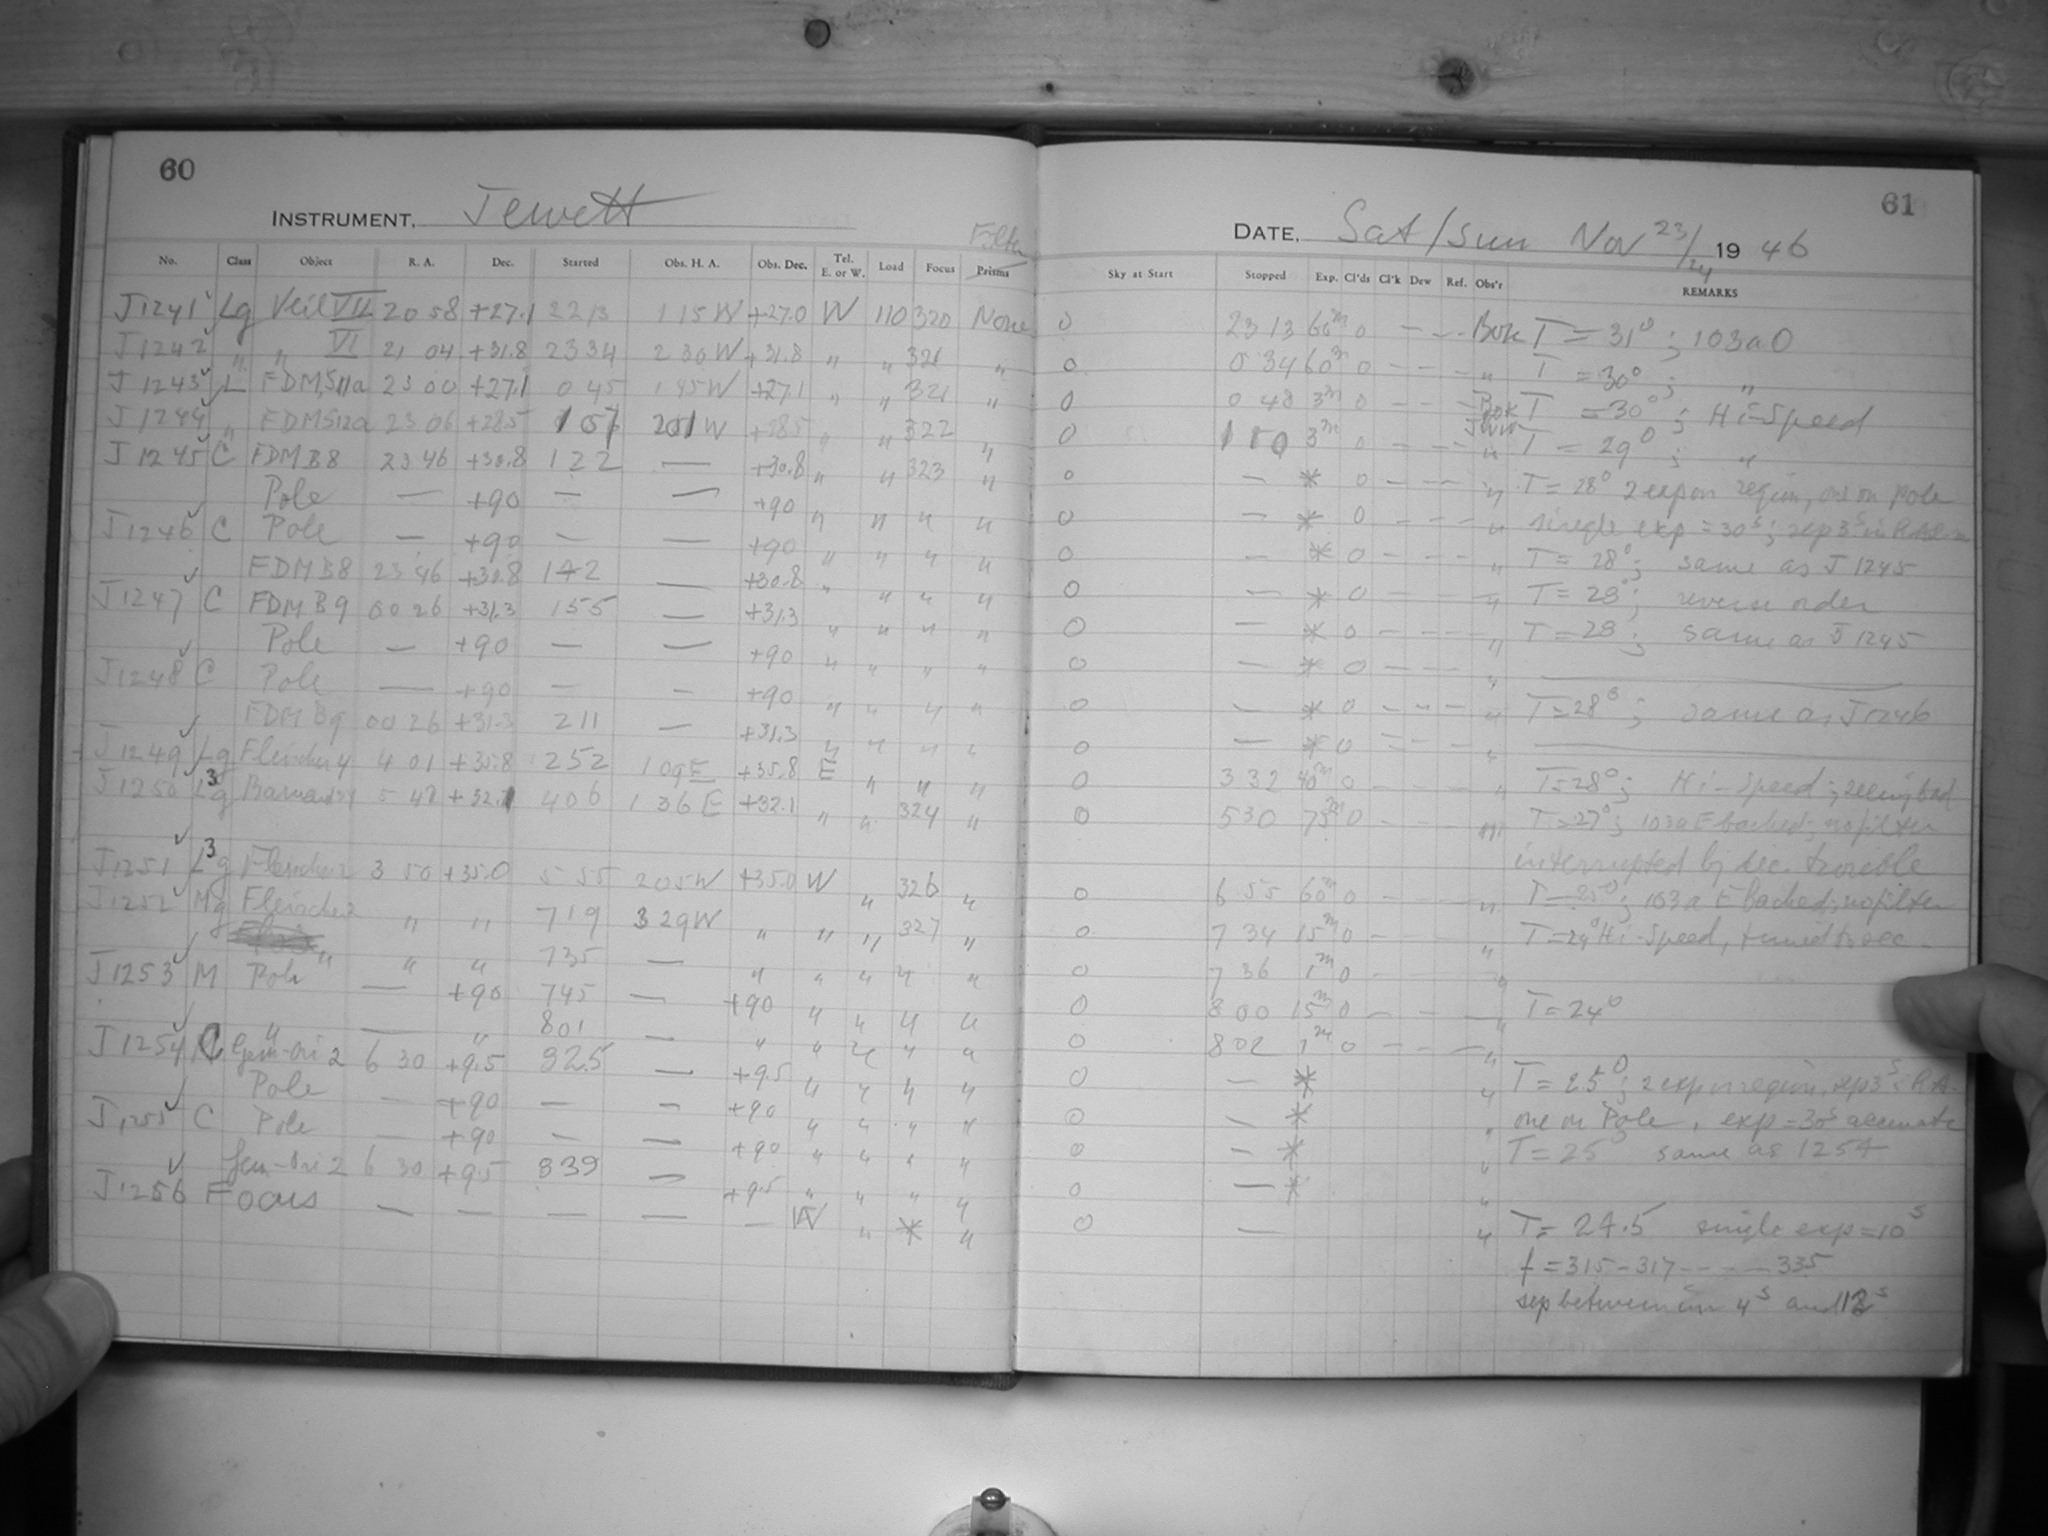 60
INSTRUMENT, Jewett
Filter
No. Class Object R. A. Dec. Started Obs. H. A. Obs. Dec. Tel. E. or W. Load Focus Prisms
J1241 Lg Veil VII 20 58 +27.1 22 13 1 15 W +27.0 W 110 320 None
J1242 " " VI 21 04 +31.8 23 34 2 30 W +31.8 " " 321 "
J1243 L FDMS11a 23 00 +27.1 0 45 1 45 W +27.1 " " 321 "
J1244 " FDMS12a 23 06 +28.5 1 07 2 01 W +28.5 " " 322 "
J1245 C FDM B8 23 46 +30.8 1 22 — +30.8 " " 323 "
Pole — +90 — — +90 " " " "
J1246 C Pole — +90 — — +90 " " " "
FDM B8 23 46 +30.8 1 42 — +30.8 " " " "
J1247 C FDM B9 00 26 +31.3 1 55 — +31.3 " " " "
Pole — +90 — — +90 " " " "
J1248 C Pole — +90 — — +90 " " " "
FDM B9 00 26 +31.3 2 11 — +31.3 " " " "
J1249 Lg Fleischer 4 4 01 +35.8 2 52 1 09 E +35.8 E " " "
J1250 L3g 5 42 +32.1 4 06 1 36 E +32.1 " " 324 "
J1251 L3g Fleischer 2 3 50 +35.0 5 55 2 05 W +35.0 W " 326 "
J1252 Mg Fleischer 2 " " 7 19 3 29 W " " " 327 "
" " " 7 35 — " " " " "
J1253 M Pole — +90 7 45 — +90 " " " "
" — " 8 01 — " " " " "
J1254 C Gem-Ori 2 6 30 +9.5 8 25 — +9.5 " " " "
Pole — +90 — — +90 " " " "
J1255 C Pole — +90 — — +90 " " " "
Gem-Ori 2 6 30 +9.5 8 39 — +9.5 " " " "
J1256 Focus — — — — — W " * "
61
DATE, Sat/Sun Nov 23/24 1946
Sky at Start Stopped Exp. Cl'ds Cl'k Dew Ref. Obs'r REMARKS
0 23 13 60m 0 — — — Bok T = 31°; 103aO
0 0 34 60m 0 — — — " T = 30°; "
0 0 48 3m 0 — — — Bok T = 30°; Hi-Speed
0 1 10 3m 0 — — — " T = 29°; "
0 — * 0 — — — " T = 28° 2 exp on region, one on pole
0 — * 0 — — — " single exp = 30s; sep 3s in R.A.
0 — * 0 — — — " T = 28°; same as J1245
0 — * 0 — — — " T = 28; reverse order
0 — * 0 — — — " T = 28; same as J1245
0 — * 0 — — — "
0 — * 0 — — — " T = 28°; same as J1246
0 — * 0 — — — "
0 3 32 40m 0 — — — " T = 28°; Hi-Speed; seeing bad
0 5 30 75m 0 — — — " T = 27°; 103aE backed; no filter
interrupted by dec. trouble
0 6 55 60m 0 — — — " T = 25°; 103aE backed; no filter
0 7 34 15m 0 — — — " T = 24° Hi-Speed,
0 7 36 1m 0 — — — "
0 8 00 15m 0 — — — " T = 24°
0 8 02 1m 0 — — — "
0 — * " T = 25°; 2 exp on region, sep 3s in R.A.
0 — * " one on Pole, exp = 30s accurate
0 — * " T = 25° same as 1254
0 — * "
0 — " T = 24.5 single exp = 10s
f = 315 - 317 - - - - 335
sep between im 4s and 12s